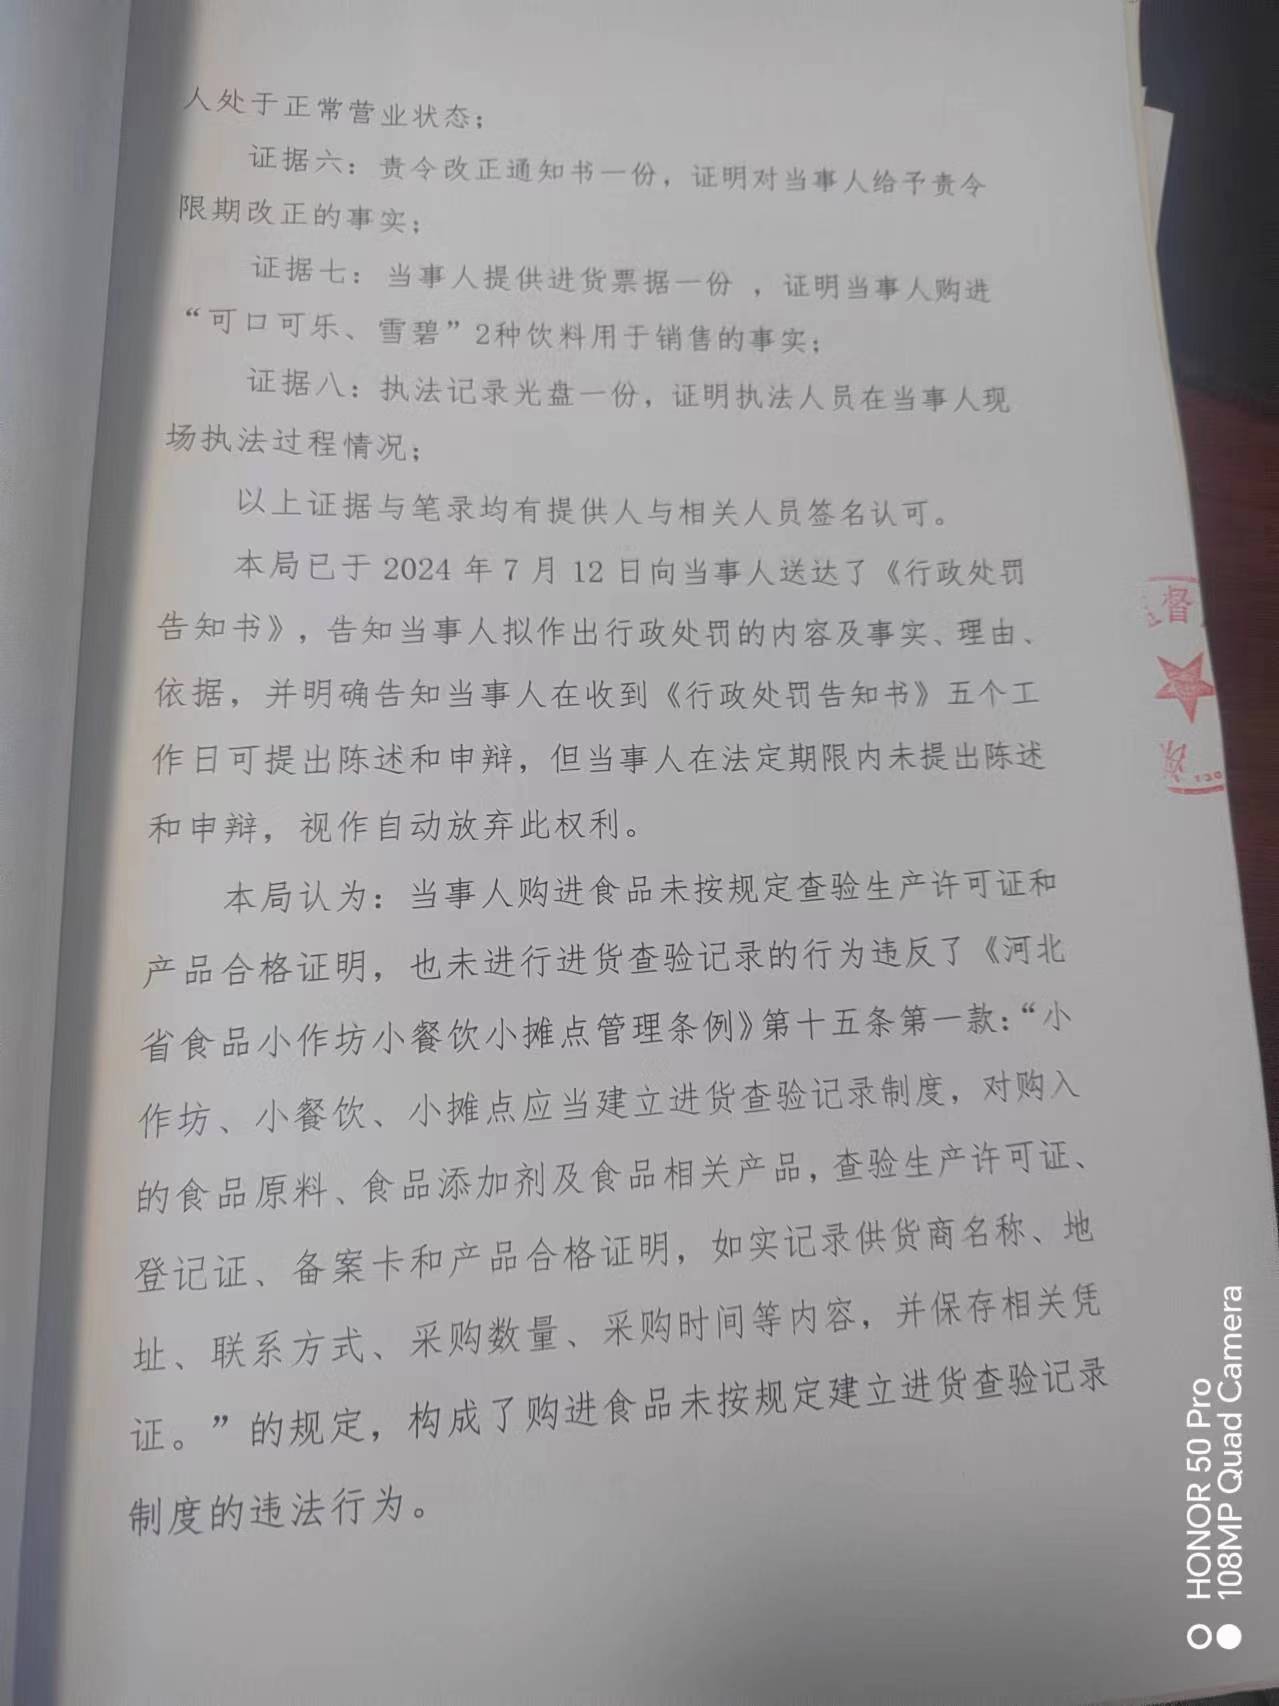 人处于正常营业状态；
证据六：责令改正通知书一份，证明对当事人给予责令
限期改正的事实；
证据七：当事人提供进货票据一份 ，证明当事人购进
“可口可乐、雪碧”2种饮料用于销售的事实；
证据八：执法记录光盘一份，证明执法人员在当事人现
场执法过程情况；
以上证据与笔录均有提供人与相关人员签名认可。
本局已于 2024 年 7 月 12 日向当事人送达了《行政处罚
告知书》，告知当事人拟作出行政处罚的内容及事实、理由、
依据，并明确告知当事人在收到《行政处罚告知书》五个工
作日可提出陈述和申辩，但当事人在法定期限内未提出陈述
和申辩，视作自动放弃此权利。
本局认为：当事人购进食品未按规定查验生产许可证和
产品合格证明，也未进行进货查验记录的行为违反了《河北
省食品小作坊小餐饮小摊点管理条例》第十五条第一款：“小
作坊、小餐饮、小摊点应当建立进货查验记录制度，对购入
的食品原料、食品添加剂及食品相关产品，查验生产许可证、
登记证、备案卡和产品合格证明，如实记录供货商名称、地
址、联系方式、采购数量、采购时间等内容，并保存相关凭
证。”的规定，构成了购进食品未按规定建立进货查验记录
制度的违法行为。
督
130
HONOR 50 Pro
108MP Quad Camera